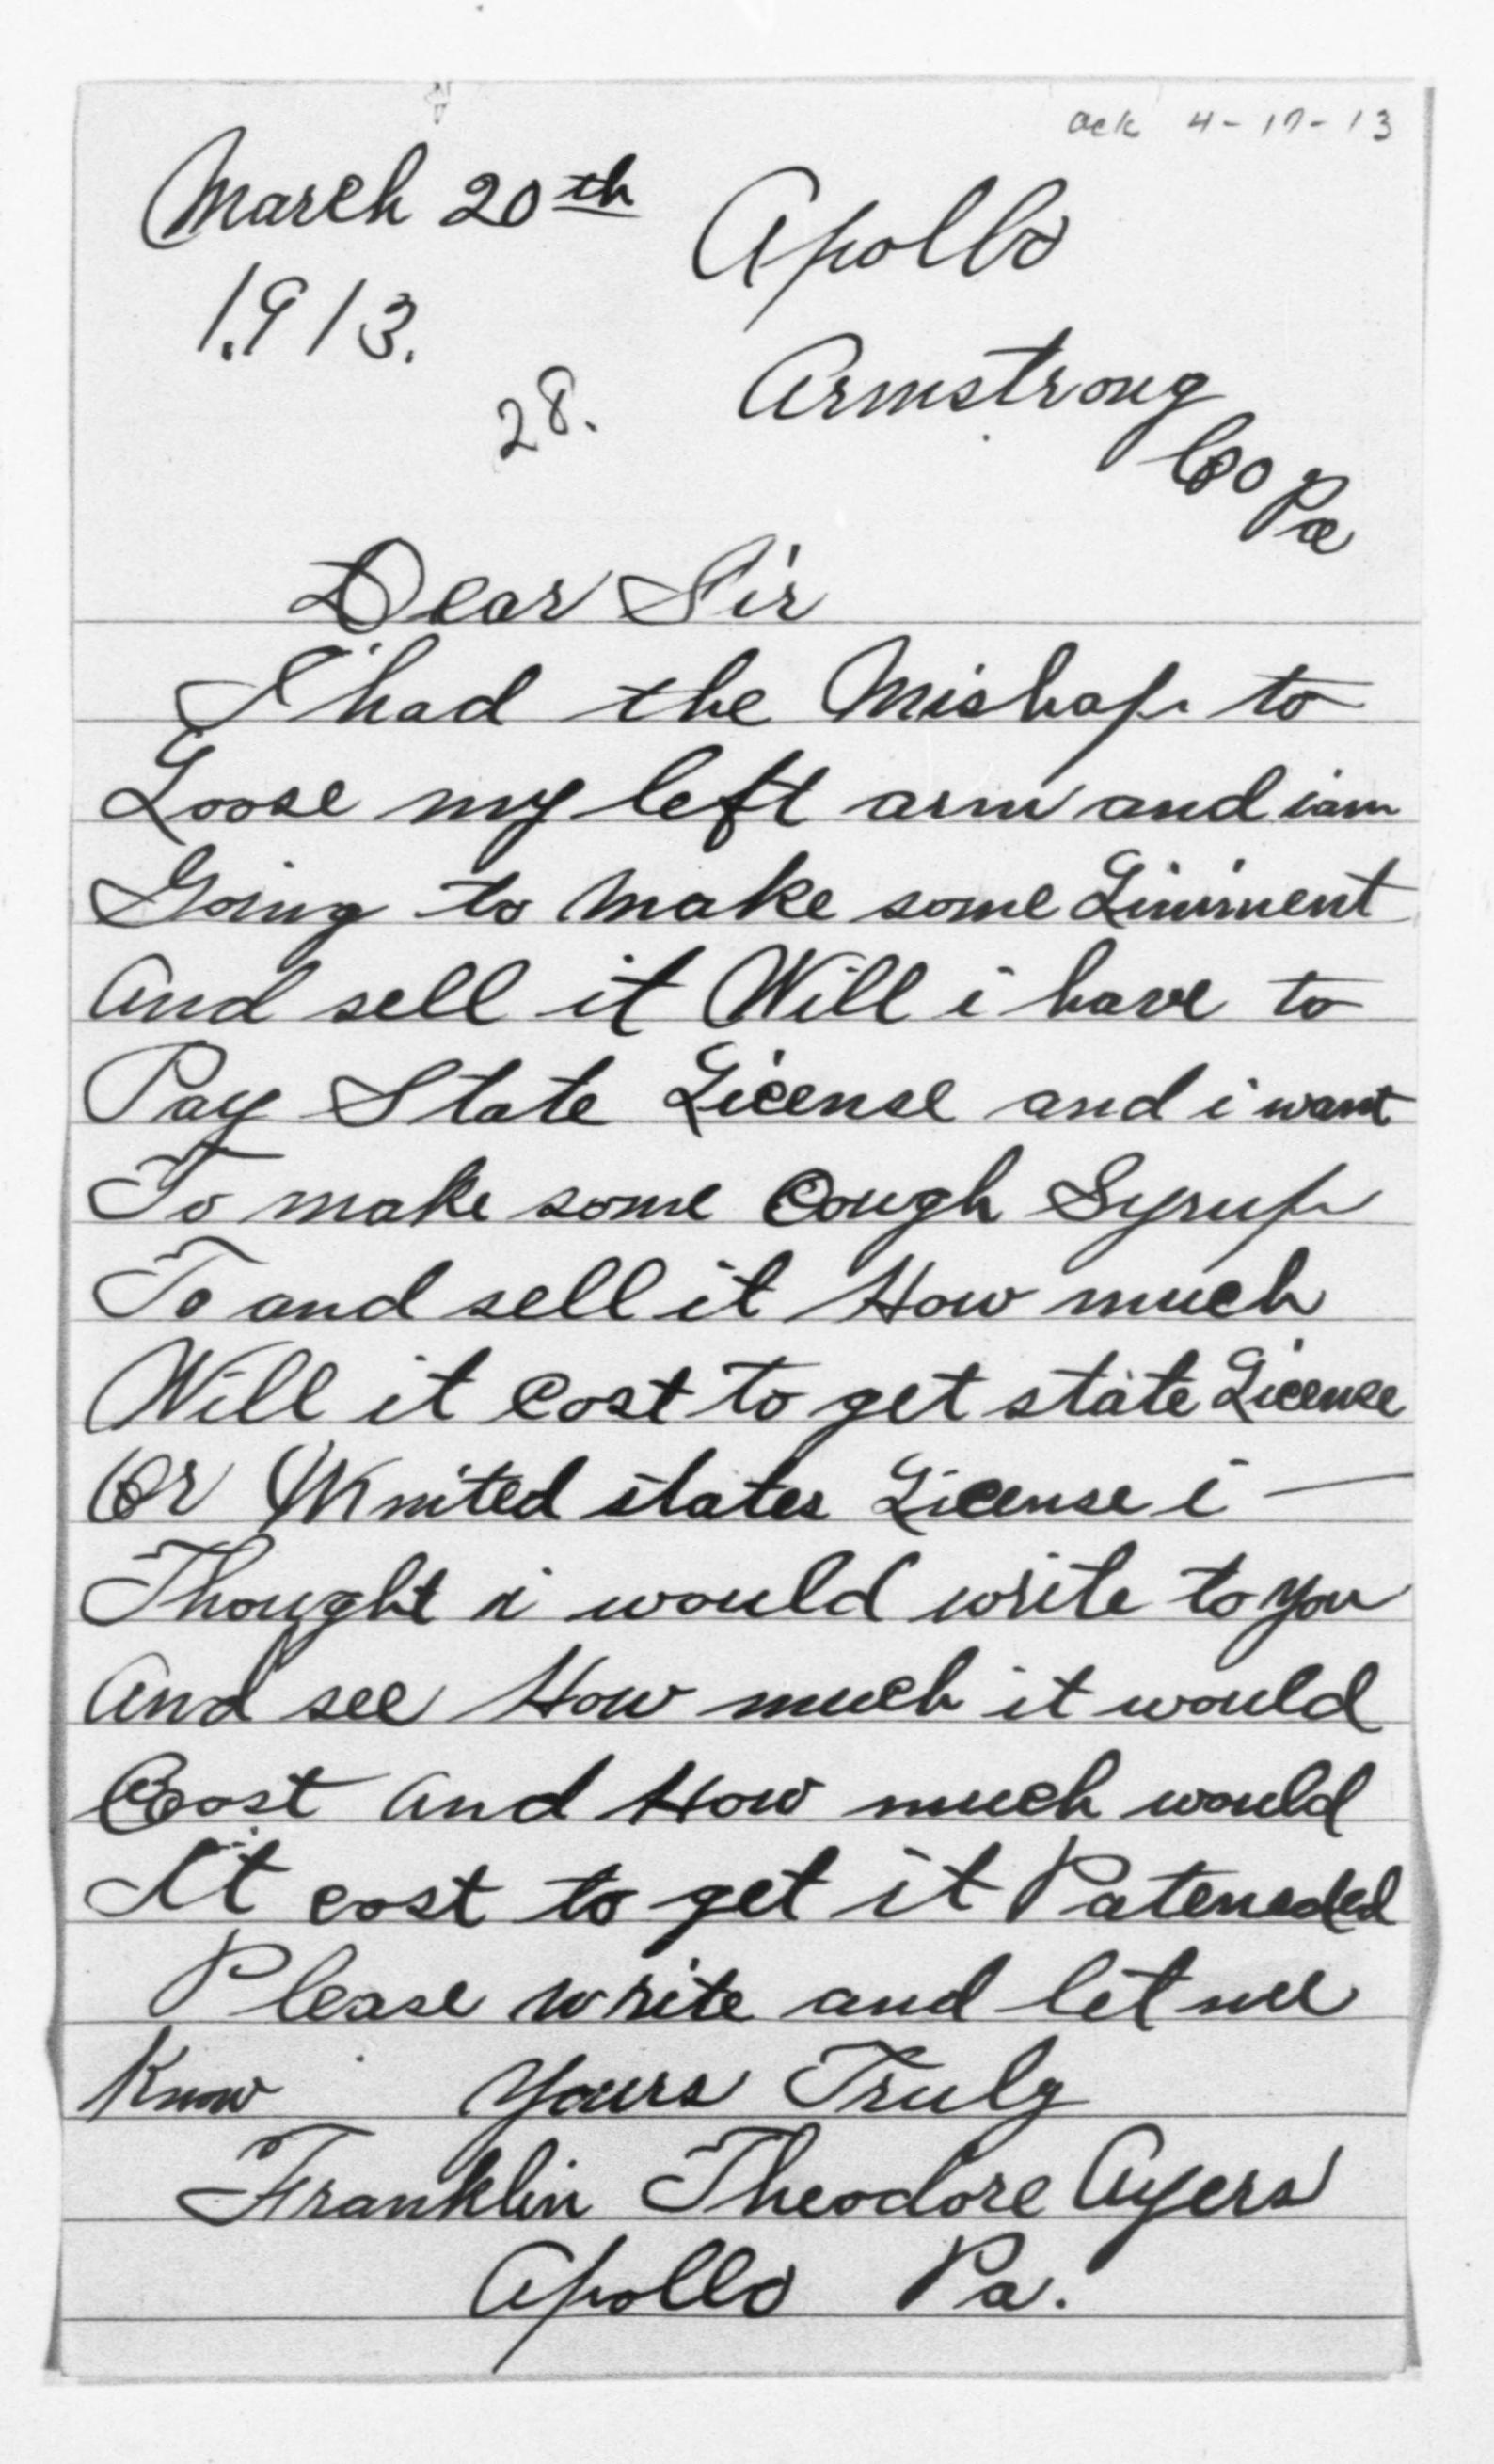 ack 4-17-13
March 20th Apollo
1913.
28. Armstrong
Co Pa
Dear Sir
I had the Mishap to
Loose my left arm and iam
Going to Make some Liniment
And sell it Will i have to
Pay State License and i want
To make some Cough Syrup
To and sell it How much
Will it Cost to get state License
Or United states License i —
Thought i would write to you
And see How much it would
Cost And How much would
It cost to get it Pateneded
Please write and let me
Know Yours Truly
Franklin Theodore Ayers
Apollo Pa.